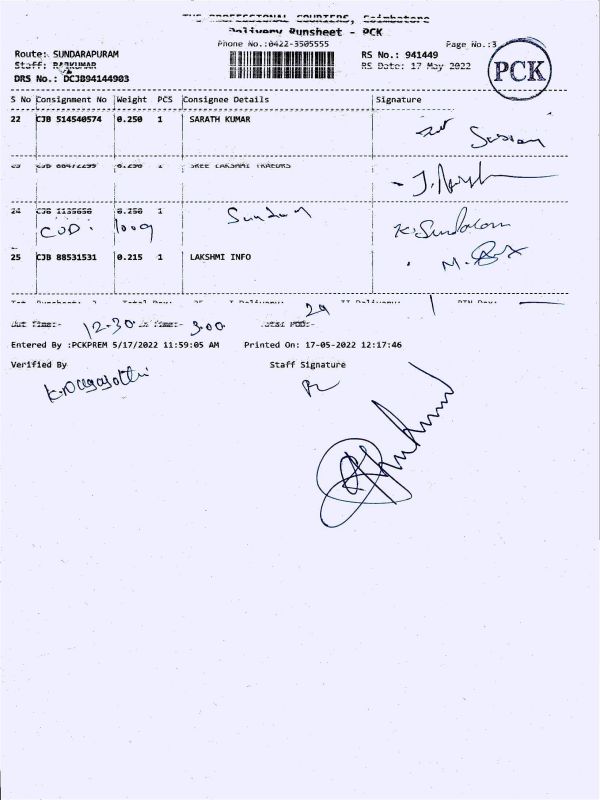 THE PROFESSIONAL COURIERS, Coimbatore
Delivery Runsheet - PCK
Phone No.:0422-3505555
Page No.:3
Route: SUNDARAPURAM
RS No.: 941449
Staff: RAJKUMAR
RS Date: 17 May 2022
PCK
DRS No.: DCJB94144903
S No Consignment No Weight PCS Consignee Details Signature
22 CJB 514540574 0.250 1 SARATH KUMAR
23 CJB 88472299 0.250 1 SREE LAKSHMI TRADERS
24 CJB 1135650 0.250 1 Sundar K. Sundaram
COD: 100g
25 CJB 88531531 0.215 1 LAKSHMI INFO M.
29 1
Out Time:- 12-30 In Time:- 3.00 Total POD:-
Entered By :PCKPREM 5/17/2022 11:59:05 AM Printed On: 17-05-2022 12:17:46
Verified By Staff Signature